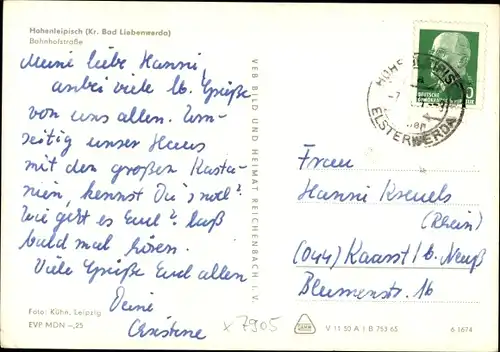 Hohenleipisch (Kr. Bad Liebenwerda)
Bahnhofstraße
Meine liebe Hanni,
anbei viele lb. Grüße
von uns allen. Um-
seitig unser Haus
mit den großen Kasta-
nien, kennst Du's noch?
Wie geht es Euch? Laß
bald mal hören.
Viele Grüße Euch allen
Deine
Christine
Foto: Kühn, Leipzig
EVP MDN -,25
x 7905
VEB BILD UND HEIMAT REICHENBACH I. V.
ELSTERWERDA
Frau
Hanni Kreuels
(Rhein)
(044) Kaarst / b. Neuß
Blumenstr. 16
V 11 50 A 1 B 753 65
6 1674